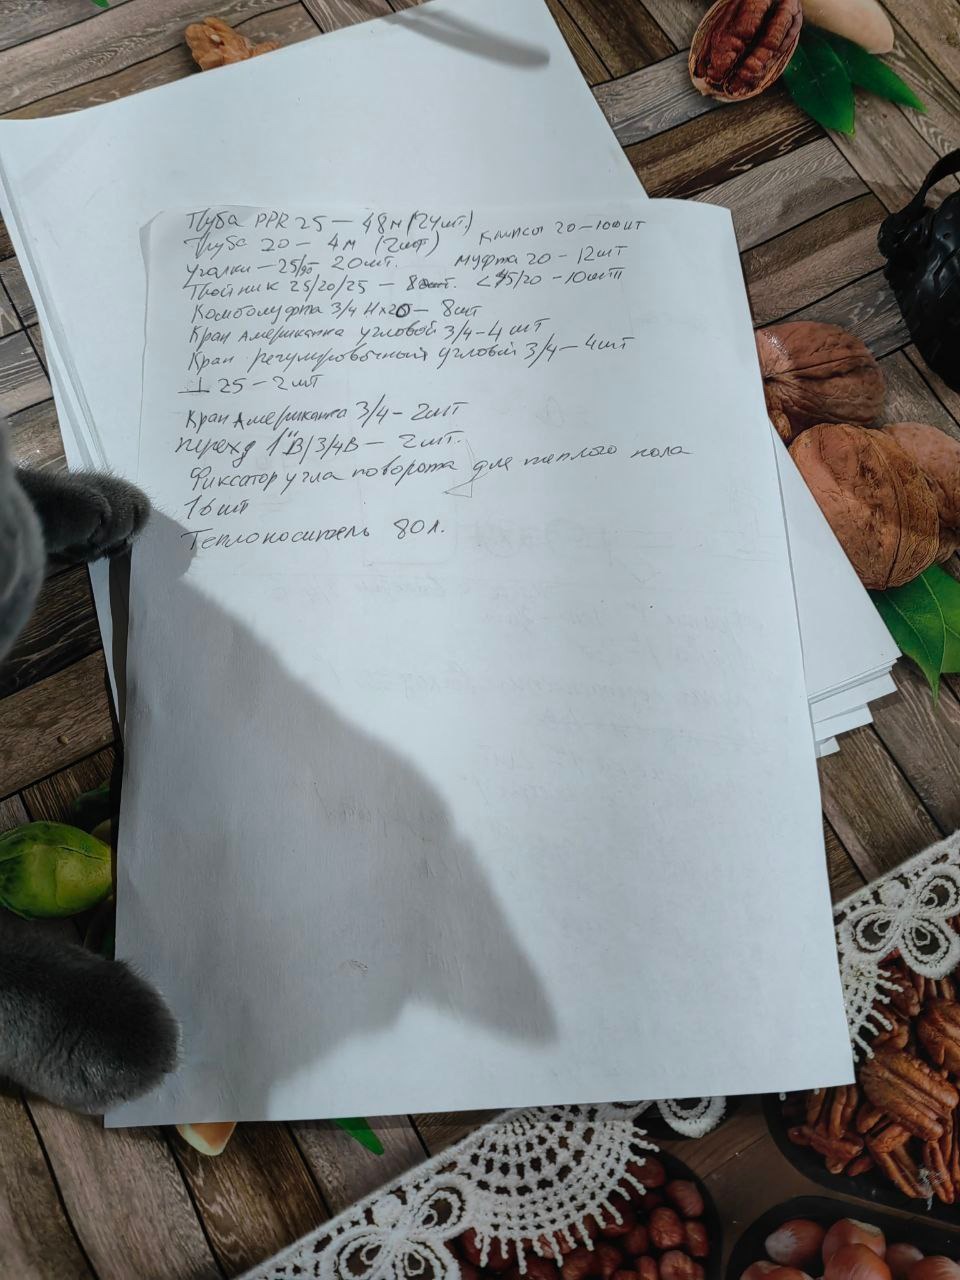 Труба PPR 25 – 48м (24шт)
Труба 20 – 4м (2шт) Клипсы 20-100шт
уголки – 25/90 20шт. муфта 20 – 12шт
Тройник 25/20/25 – 8шт. < 45/20 – 10шт
Комбомуфта 3/4 Нх20 – 8шт
Кран Американка угловой 3/4 – 4шт
Кран регулировочный угловой 3/4 – 4шт
⊥ 25 – 2шт
Кран Американка 3/4 – 2шт
переход 1"В/3/4В – 2шт.
Фиксатор угла поворота для теплого пола
16шт
Теплоноситель 80л.